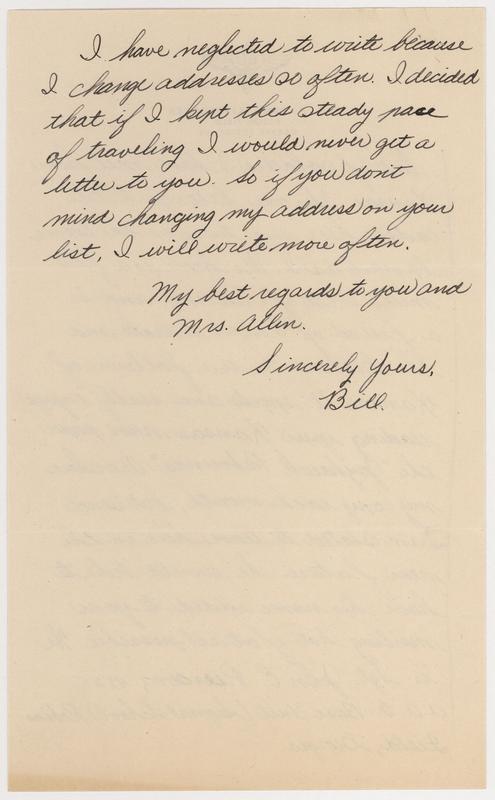 I have neglected to write because
I change addresses so often. I decided
that if I kept this steady pace
of traveling I would never get a
letter to you. So if you don't
mind changing my address on your
list, I will write more often.
My best regards to you and
Mrs. Allen.
Sincerely Yours,
Bill.